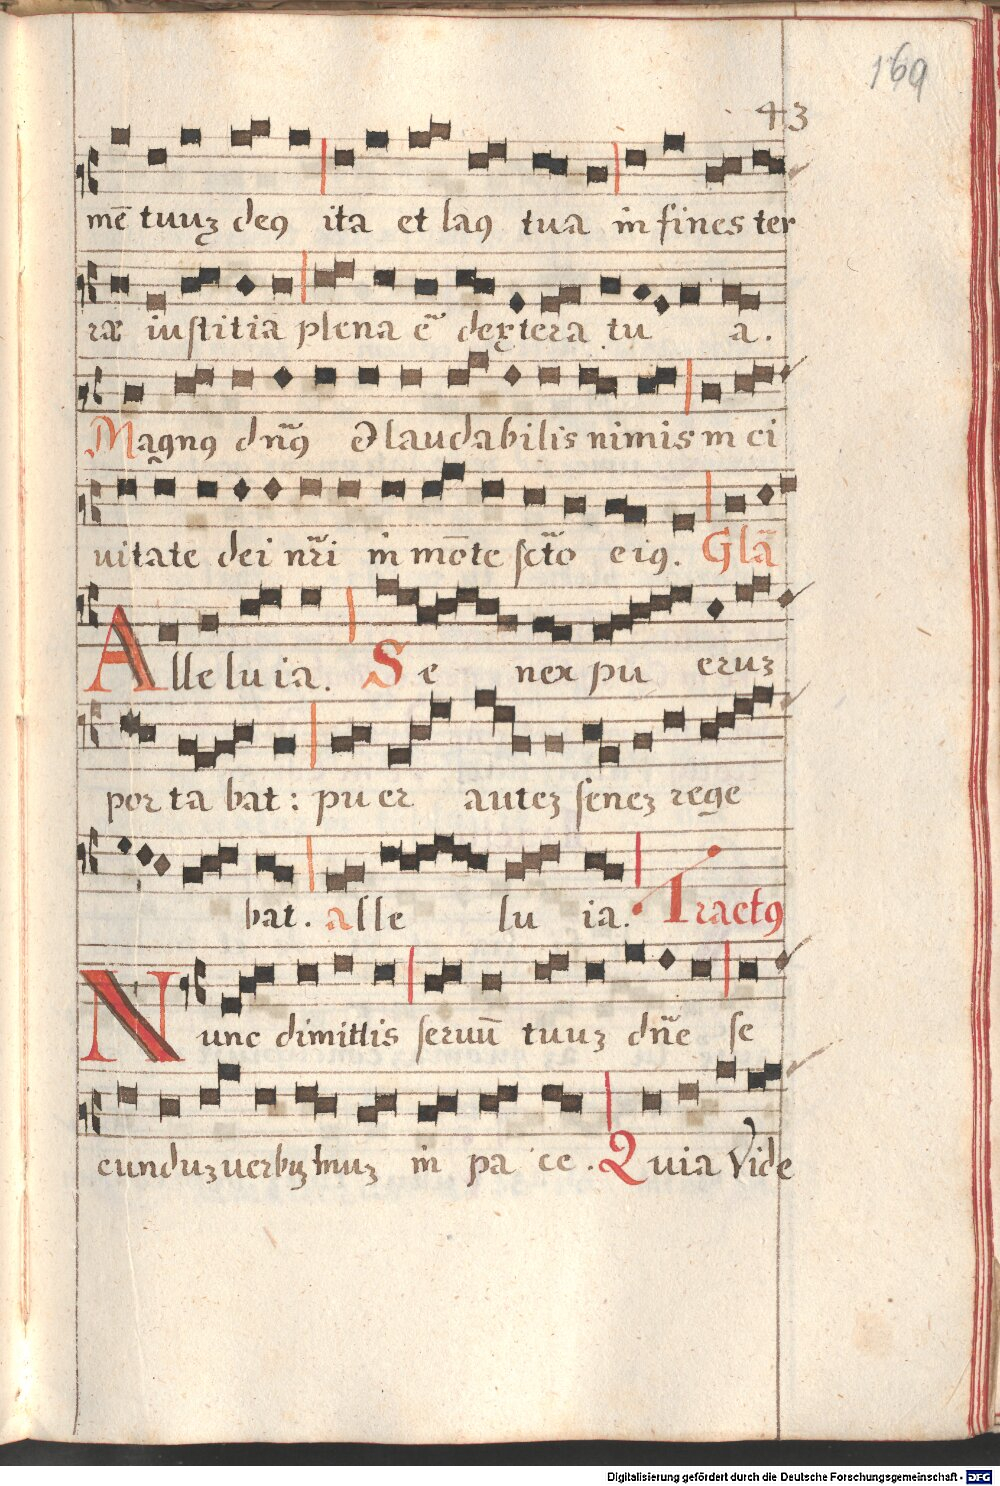 169
43
mē tuuꝫ deꝰ ita et laꝰ tua in fines ter
ræ iustitia plena ē dextera tu a.
Magnꝰ dñs & laudabilis nimis in ci
uitate dei nr̄i in mōte sctō eiꝰ. Glā
Alleluia. Se nex pu eruꝫ
porta bat: puer auteꝫ seneꝫ rege
bat. alle lu ia. Tractꝰ
Nunc dimittis seruū tuuꝫ dñe se
cunduꝫ uerbuꝫ tuuꝫ in pa ce. Quia Vide
Digitalisierung gefördert durch die Deutsche Forschungsgemeinschaft - DFG